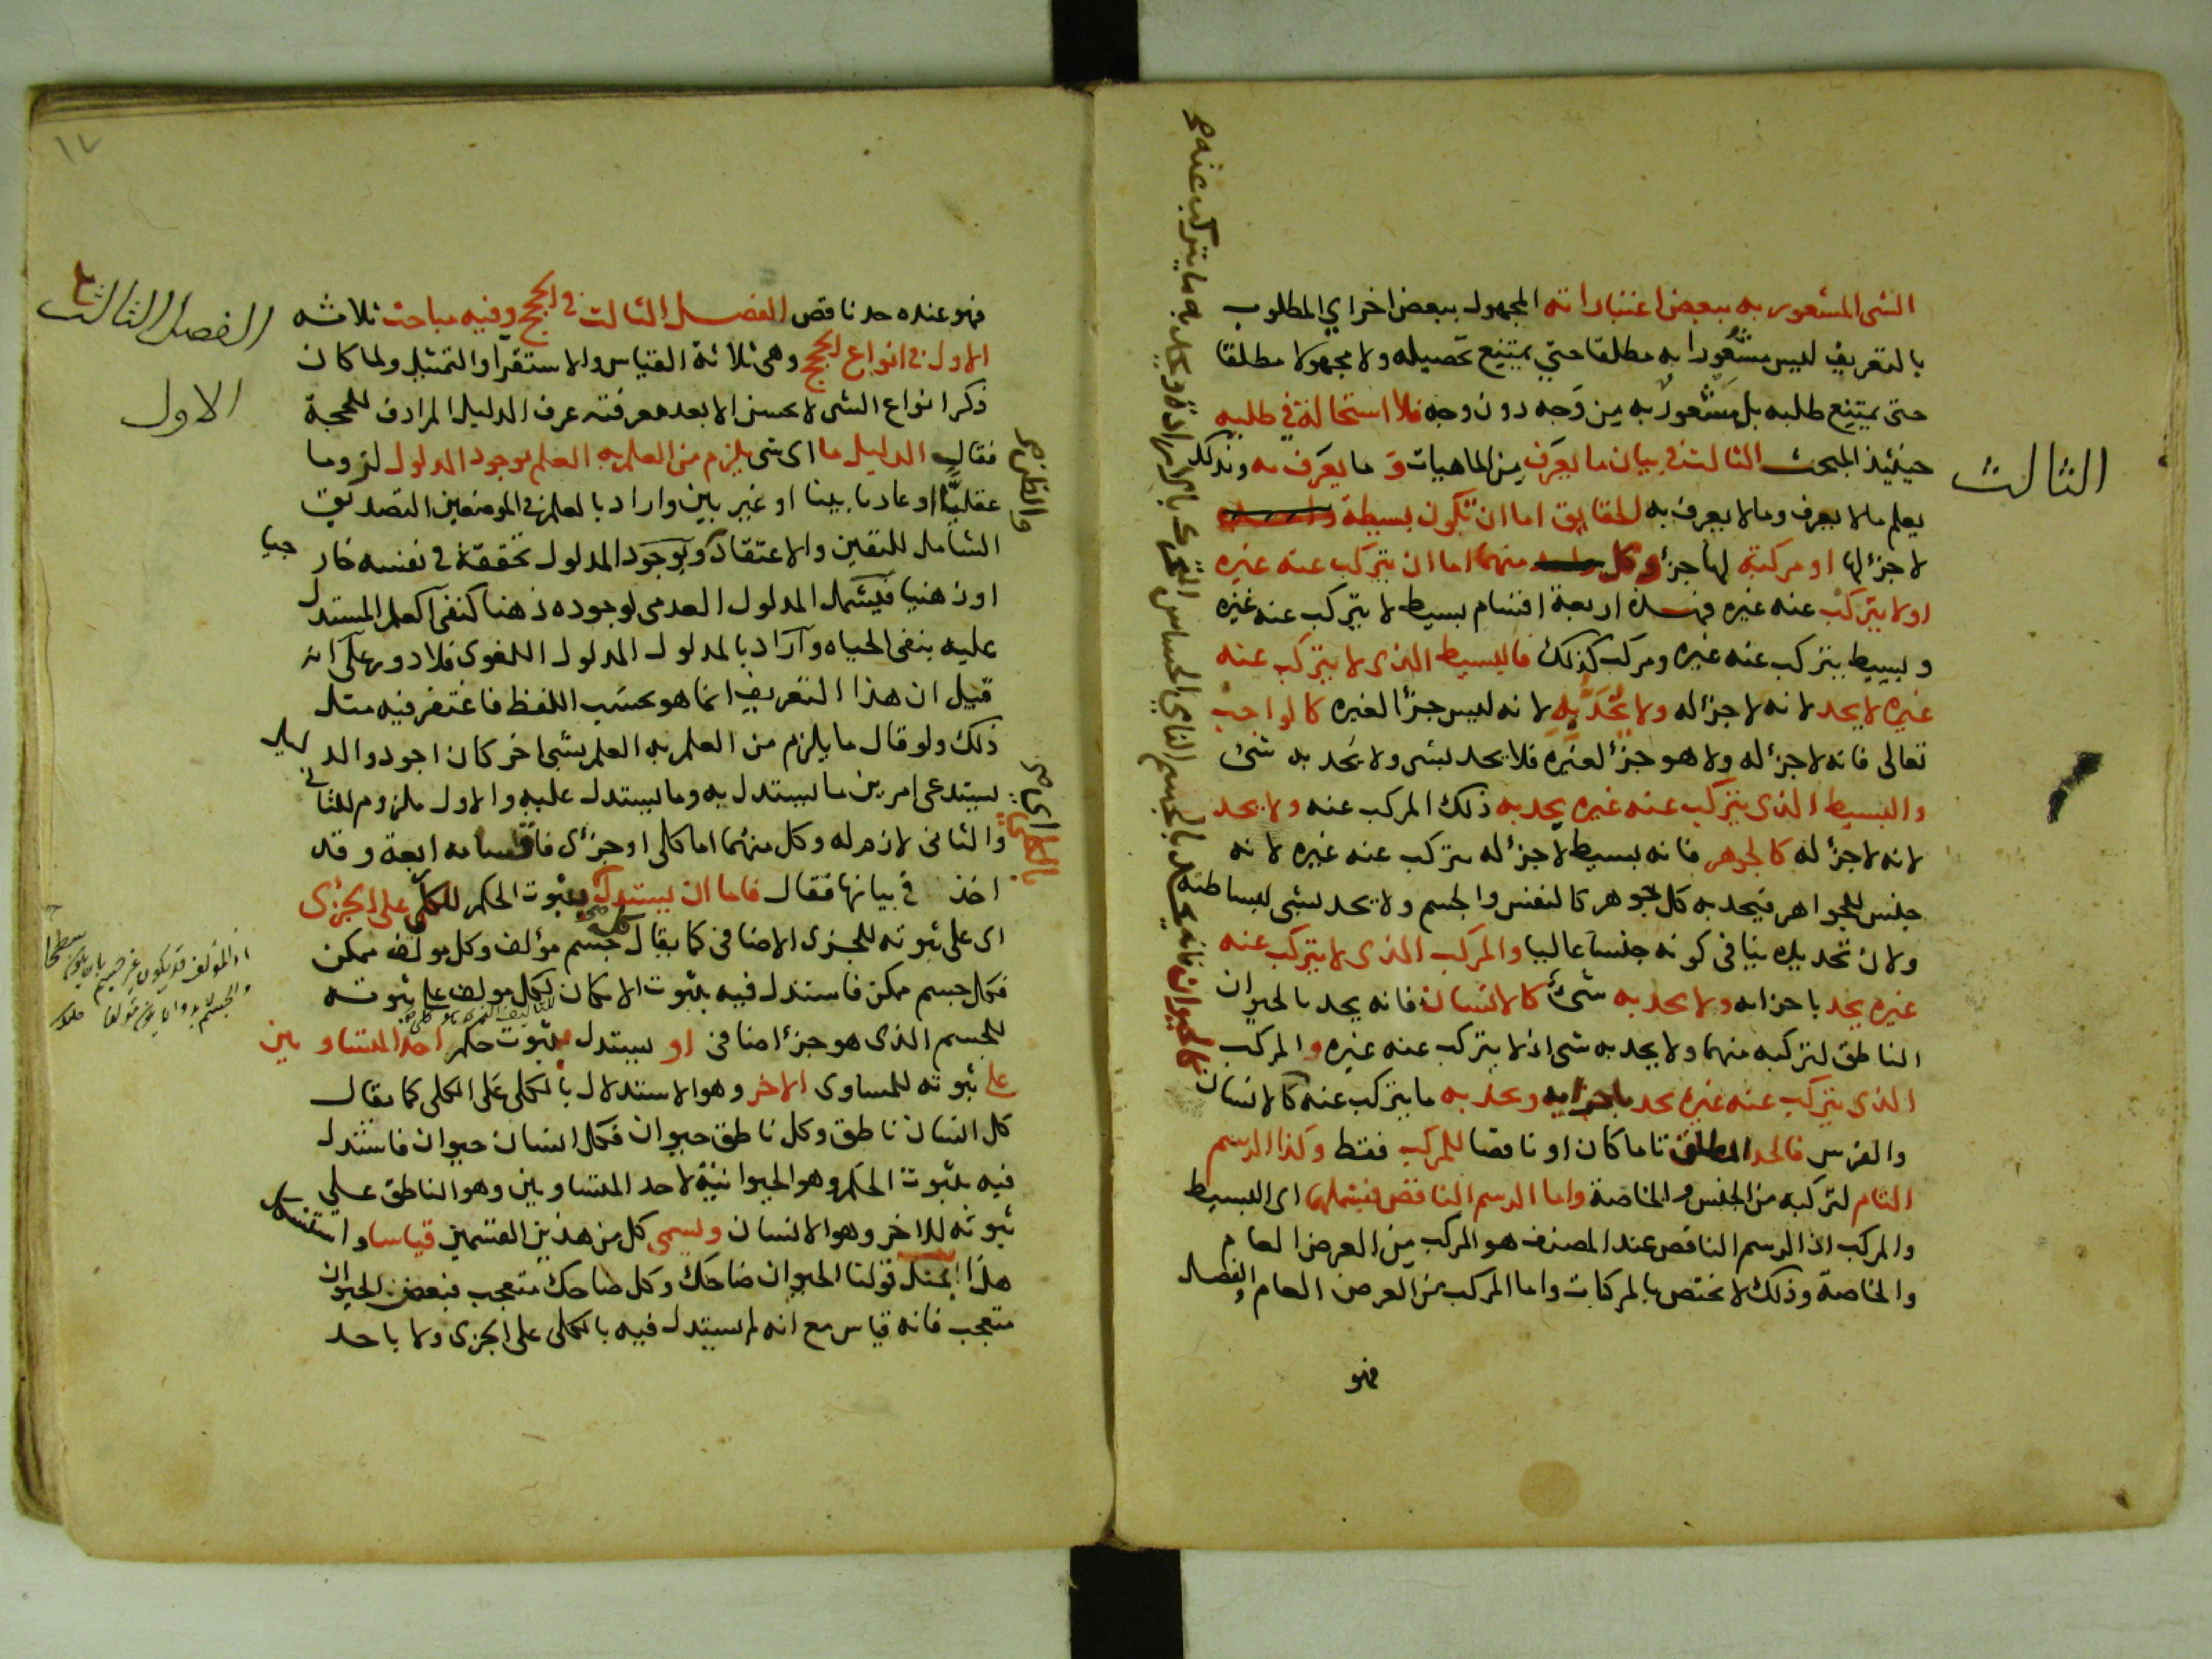 الشى المشعور به ببعض اعتباراته المجهول ببعض اخر اي المطلوب
بالتعريف ليس مشعورا به مطلقا حتي يمتنع تحصيله ولا مجهولا مطلقا
حتى يمتنع طلبه بل مشعور به من وجه دون وجه فلا استحالة في طلبه
حينئذ المبحث الثالث في بيان ما يعرف من الماهيات و ما يعرف به وبذلك
يعلم ما لا يعرف وما لا يعرف به الحقايق اما ان تكون بسيطة
لا جزء لها او مركبة لها جزء وكل منهما اما ان يتركب عنه غيره
او لا يتركب عنه غيره فهذه اربعة اقسام بسيط لا يتركب عنه غيره
وبسيط يتركب عنه غيره ومركب كذلك فالبسيط الذى لا يتركب عنه
غيره لا يحد لانه لا جزء له ولا يحد به لانه ليس جزءا لغيره كالواجب
تعالى فانه لا جزء له ولا هو جزء لغيره فلا يحد بشى ولا يحد به شئ
والبسيط الذى يتركب عنه غيره يحد به ذلك المركب عنه ولا يحد
لانه لا جزء له كالجوهر فانه بسيط لا جزء له يتركب عنه غيره لانه
جنس للجواهر فيحد به كل جوهر كالنفس والجسم ولا يحد بشى لبساطته
ولان تحديده ينافى كونه جنسا عاليا والمركب الذى لا يتركب عنه
غيره يحد باجزائه ولا يحد به شئ كالانسان فانه يحد بالحيوان
الناطق لتركبه منهما ولا يحد به شى اذ لا يتركب عنه غيره والمركب
الذى يتركب عنه غيره يحد باجزايه ويحد به ما يتركب عنه كالانسان
والفرس فالحد المطلق تاما كان او ناقصا للمركب فقط وكذا الرسم
التام لتركبه من الجنس والخاصة واما الرسم الناقص فيشملهما اى البسيط
والمركب اذ الرسم الناقص عند المصنف هو المركب من العرض العام
والخاصة وذلك لا يختص بالمركبات واما المركب من العرض العام والفصل
فهو
كالحيوان فانه يحد بالجسم النامي الحساس المتحرك بالارادة ويحد به ما يتركب عنه صح
الثالث
١٧
فهو عنده حد ناقص الفصل الثالث في الحجج وفيه مباحث ثلاثه
الاول في انواع الحجج وهى ثلاثة القياس والاستقرا والتمثيل ولما كان
ذكر انواع الشى لا يحسن الا بعد معرفته عرف الدليل المرادف للحجة
فقال الدليل ما اى شى يلزم من العلم به العلم بوجود المدلول لزوما
عقليا او عاديا بينا او غير بين واراد بالعلم في الموضعين التصديق
الشامل لليقين والاعتقاد وبوجود المدلول تحققه في نفسه خارجيا
او ذهنيا فيشمل المدلول العدمى لوجوده ذهنا كنفى العلم المستدل
عليه بنفى الحياه واراد بالمدلول المدلول اللغوى فلا دور على انه
قيل ان هذا التعريف انما هو بحسب اللفظ فاغتفر فيه مثل
ذلك ولو قال ما يلزم من العلم به العلم بشى اخر كان اجود والدليل
يستدعى امرين ما يستدل به وما يستدل عليه والاول ملزوم للثانى
والثانى لازم له وكل منهما اما كلى او جزئ فاقسامه اربعة وقد
اخذ في بيانها فقال فاما ان يستدل بثبوت الحكم للكلى على الجزئى
اى على ثبوته للجزى الاضافى كما يقال كل جسم مؤلف وكل مولف ممكن
فكل جسم ممكن فاستدل فيه بثبوت الامكان لكل مولف على ثبوته
للجسم الذى هو جزء اضافى او يستدل بثبوت حكم احد المتساويين
على ثبوته للمساوى الاخر وهو الاستدلال بالكلى على الكلى كما يقال
كل انسان ناطق وكل ناطق حيوان فكل انسان حيوان فاستدل
فيه بثبوت الحكم وهو الحيوانية لاحد المتساويين وهو الناطق على
ثبوته للاخر وهو الانسان ويسمى كل من هذين القسمين قياسا واستشكل
هذا بمثل قولنا الحيوان ضاحك وكل ضاحك متعجب فبعض الحيوان
متعجب فانه قياس مع انه لم يستدل فيه بالكلى على الجزى ولا باحد
الفصل الثالث
الاول
والظن صح
بالكلى اى صح